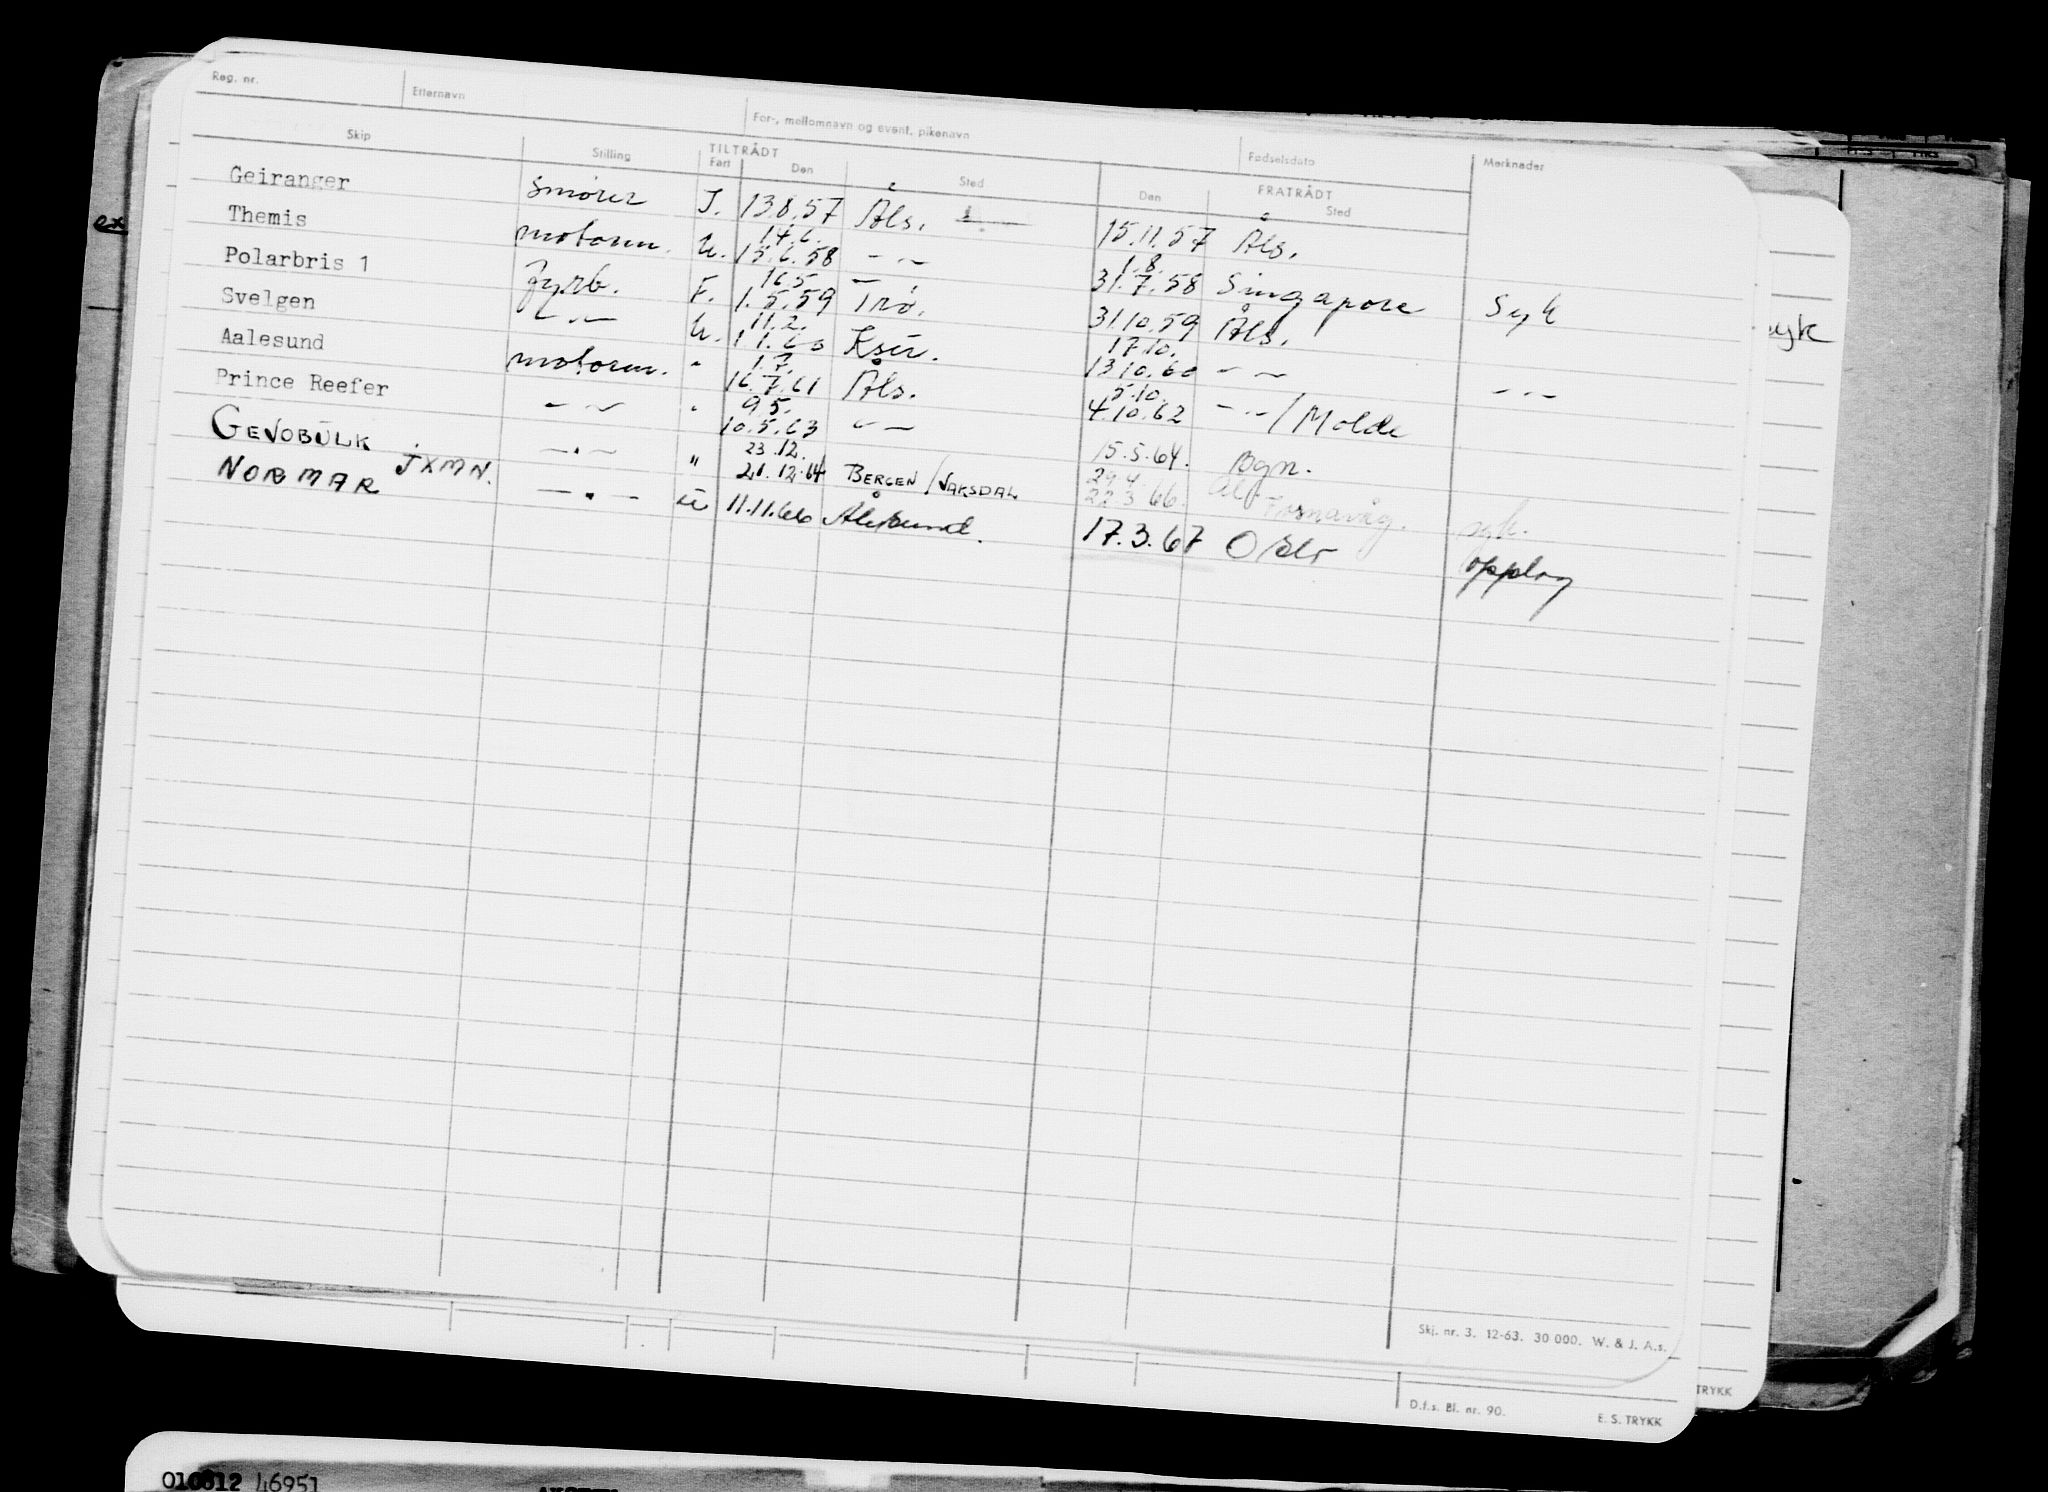 Reg. nr. Etternavn For-, mellomnavn og event. pikenavn Fødselsdato Merknader
Skip Stilling TILTRÅDT Fart Den Sted FRATRÅDT Den Sted
Geiranger smører I. 13.8.57 Åls. 15.11.57 Åls.
Themis motorm. U. 14.6. 15.6.58 - - 1.8. 31.7.58 Singapore Syk
Polarbris 1 fyrb. F. 16.5 1.5.59 Trø. 31.10.59 Åls.
Svelgen - - U. 11.2. 1 1.60 Ksu. 17.10. 13.10.60 - - - - -
Aalesund motorm. - 1.7. 16.7.61 Åls. 5.10. 4.10.62 - - / Molde
Prince Reefer - - - 9.5. 10.5.63 - - 15.5.64. Bgn.
GEVOBULK JXMN. - . - " 23.12. 21.12.64 BERGEN/VAKSDAL 29.4 22.3.66. Fosnavåg. syk.
NORMAR - . - U 11.11.66 Ålesund. 17.3.67 Oslo opplag
syk
ex
Skj. nr. 3. 12-63. 30 000. W. & J. A.s.
TRYKK
D.f.s. Bl. nr. 90. E. S. TRYKK
010312 46951